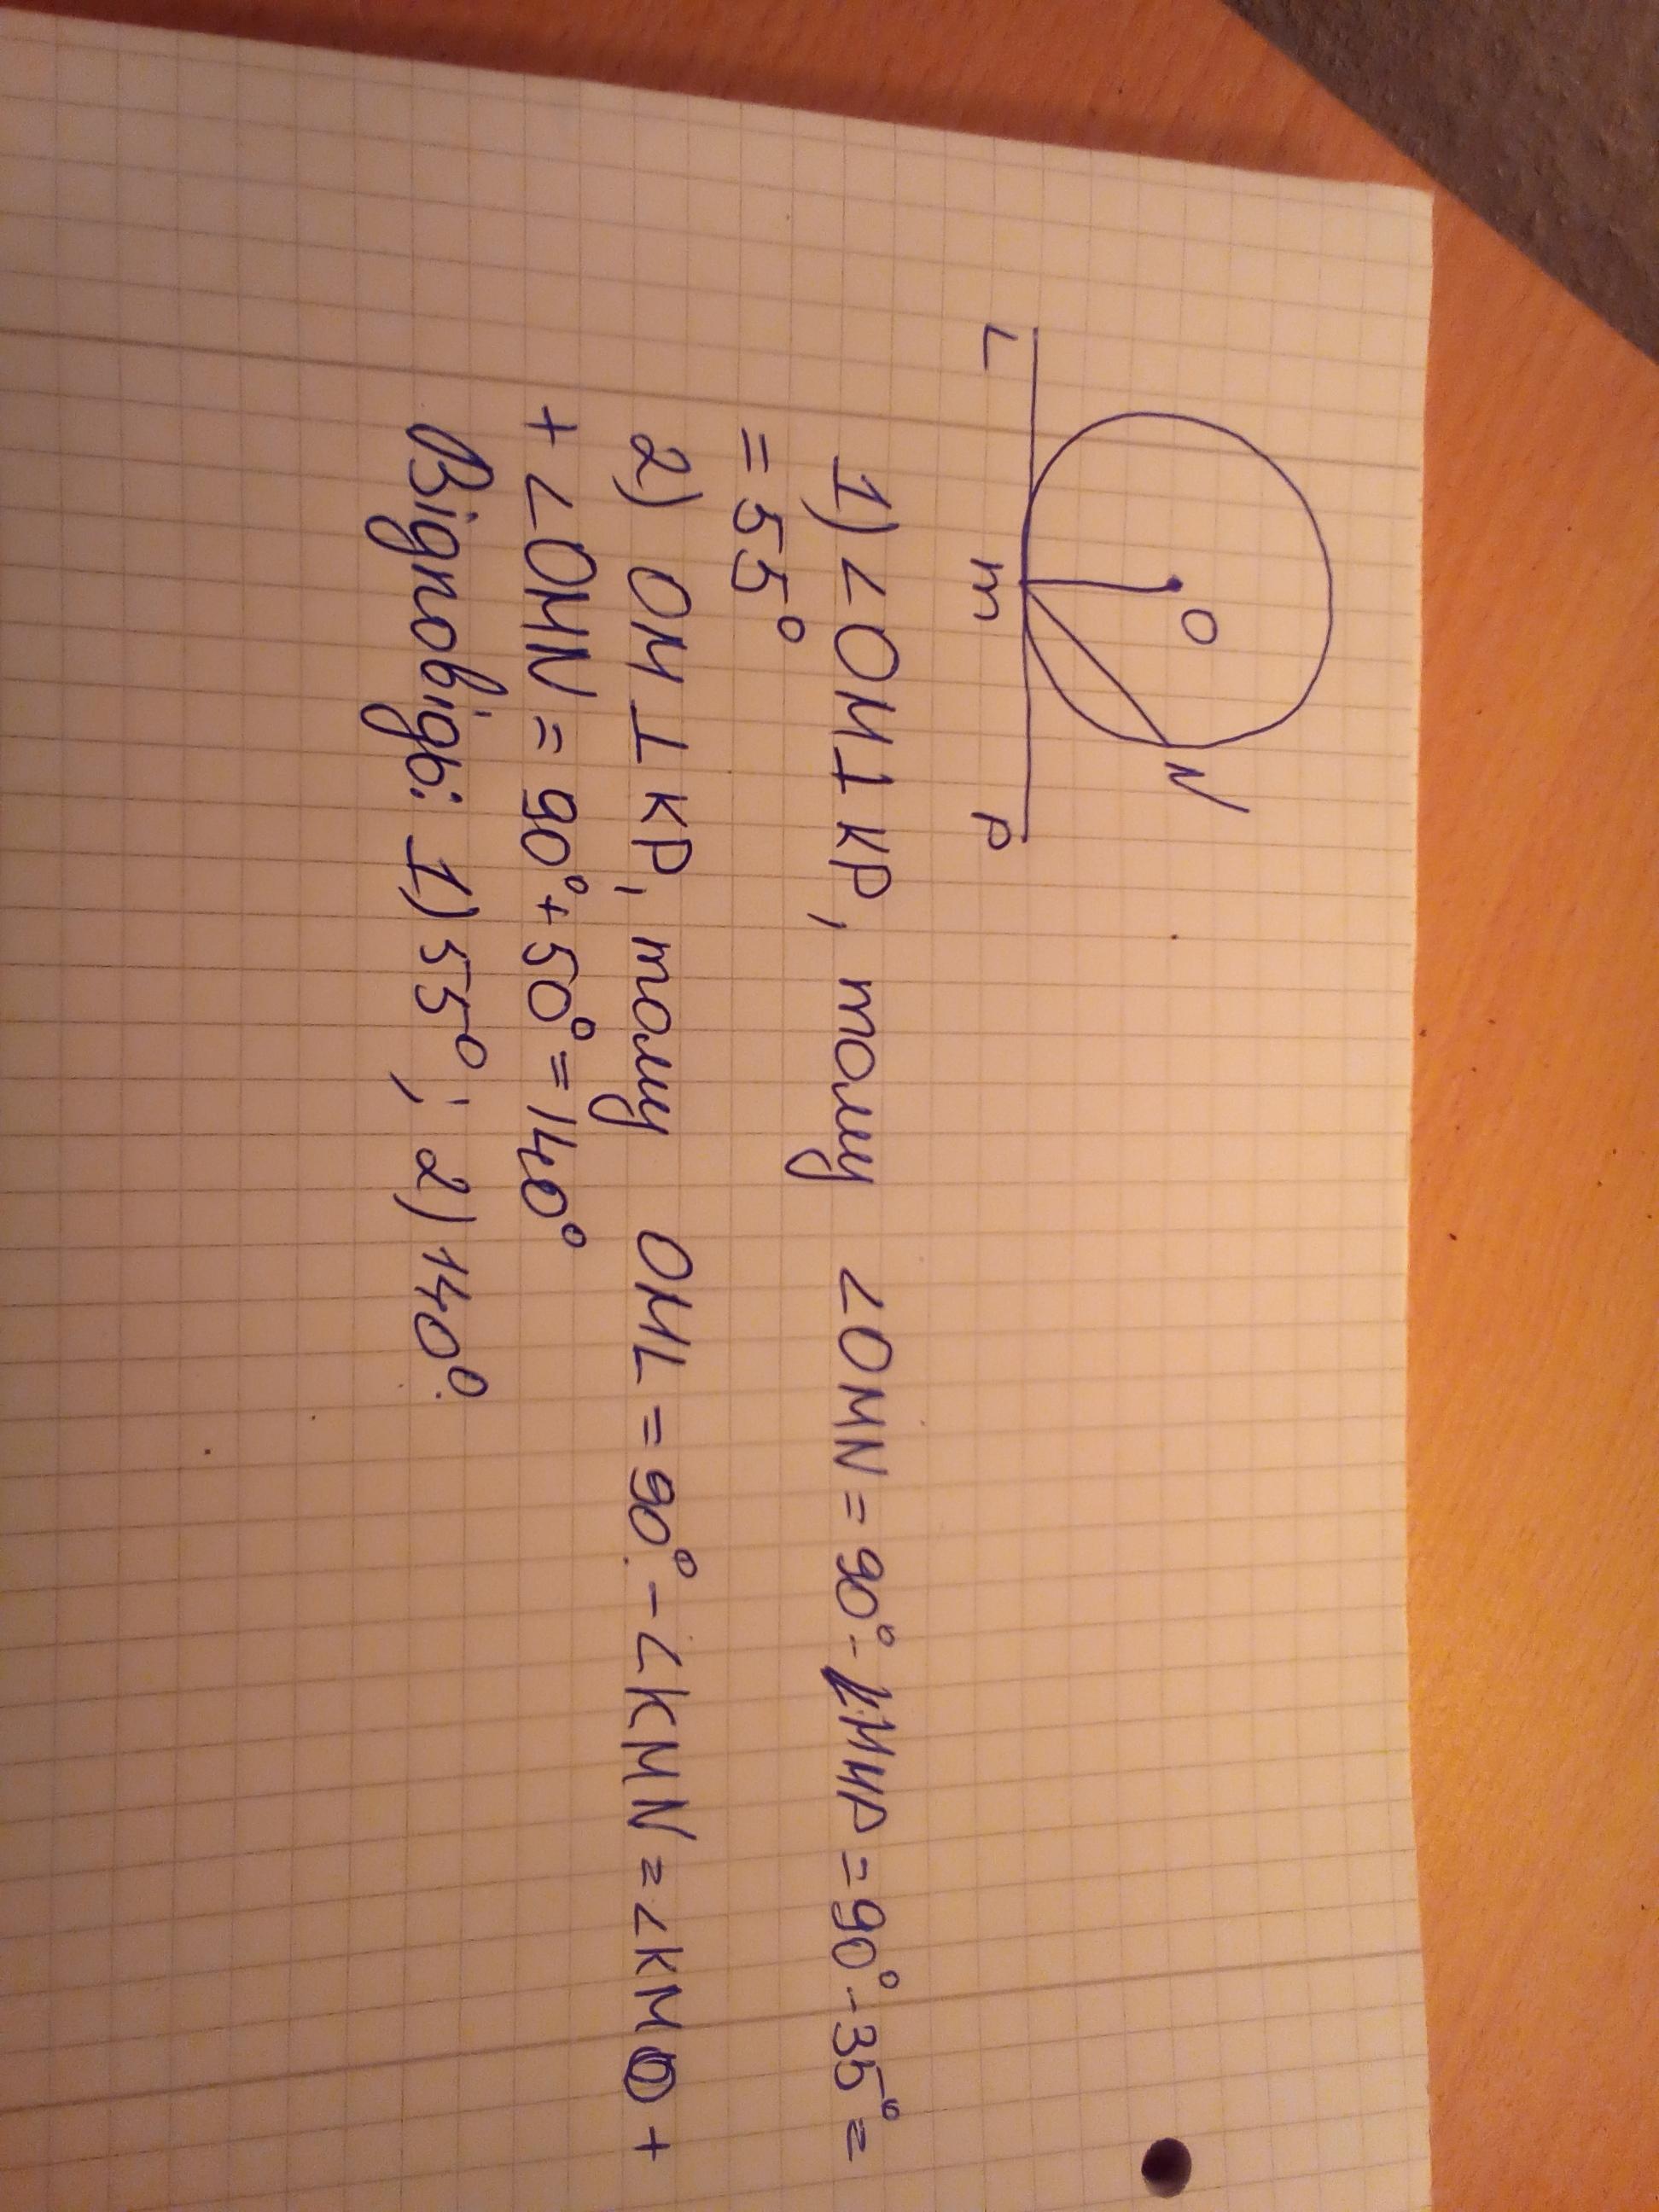 O
N
L
m
P
1) ∠OM⊥KP, тому ∠OMN = 90° - ∠MHP = 90° - 35° =
= 55°
2) OM ⊥ KP, тому OML = 90° - ∠KMN = ∠KMO +
+ ∠OMN = 90° + 50° = 140°
Відповідь: 1) 55°; 2) 140°.